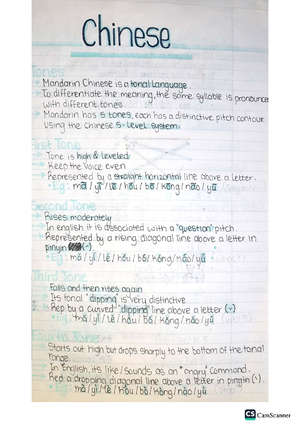 Chinese
Tones
Mandarin Chinese is a tonal language
To differentiate the meaning, the same syllable is pronounced
with different tones.
Mandarin has 5 tones, each has a distinctive pitch contour
Using the Chinese 5-level system
First Tone
Tone is high & leveled
Keep the voice even
Represented by a straight horizontal line above a letter.
Eg: mā / yī / lē / hōu / bō / kōng / nāo / yū
Second Tone
Rises moderately
In english it is associated with a "question" pitch.
Represented by a rising diagonal line above a letter in
pinyin (´)
Eg: má / yí / lé / hóu / bó / kóng / náo / yú
Third Tone
Falls and then rises again
Its tonal "dipping" is very distinctive
Rep by a curved "dipping" line above a letter (ˇ)
Eg: mǎ / yǐ / lě / hǒu / bǒ / kǒng / nǎo / yǔ
Fourth Tone
Starts out high but drops sharply to the bottom of the tonal
range
In English, its like / sounds as an "angry" command.
Rep a dropping diagonal line above a letter in pinyin (`).
Eg: mà / yì / lè / hòu / bò / kòng / nào / yù
CS CamScanner